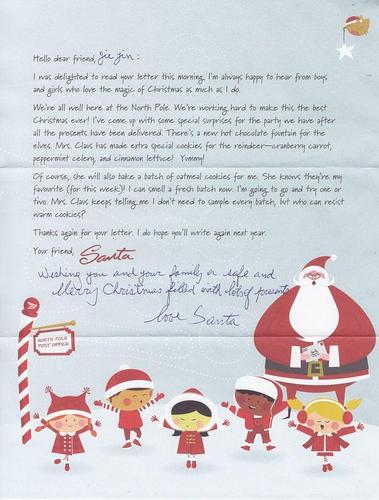 Hello dear friend, Jie Jin:
I was delighted to read your letter this morning. I'm always happy to hear from boys
and girls who love the magic of Christmas as much as I do.
We're all well here at the North Pole. We're working hard to make this the best
Christmas ever! I've come up with some special surprises for the party we have after
all the presents have been delivered. There's a new hot chocolate fountain for the
elves. Mrs. Claus has made extra special cookies for the reindeer—cranberry carrot,
peppermint celery, and cinnamon lettuce! Yummy!
Of course, she will also bake a batch of oatmeal cookies for me. She knows they're my
favourite (for this week)! I can smell a fresh batch now. I'm going to go and try one or
two. Mrs. Claus keeps telling me I don't need to sample every batch, but who can resist
warm cookies?
Thanks again for your letter. I do hope you'll write again next year.
Your friend, Santa
Wishing you and your family a safe and
Merry Christmas filled with lots of presents
love Santa
NORTH POLE
POST OFFICE